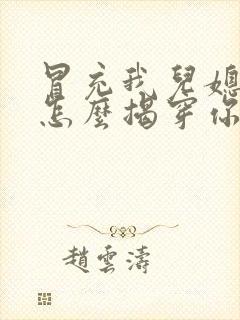 冒充我兒媳
怎麼揭穿你
趙雲濤